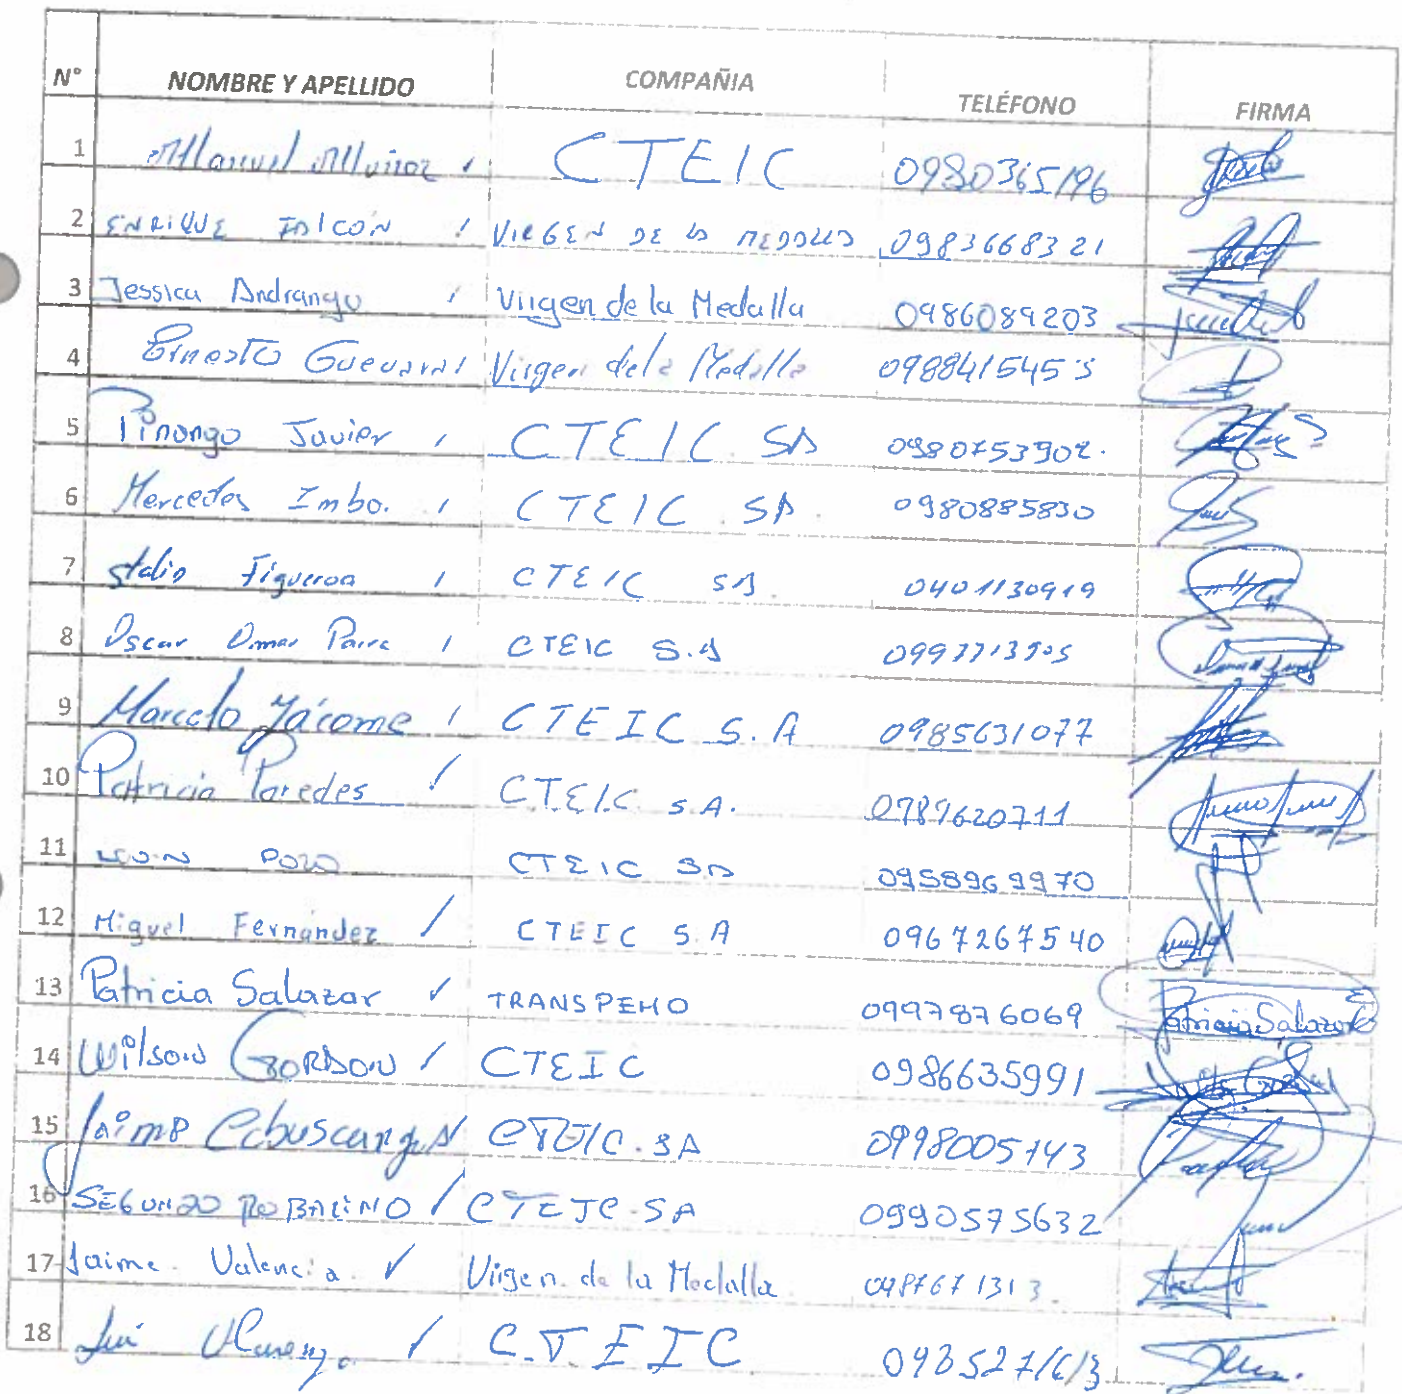 N° NOMBRE Y APELLIDO COMPAÑIA TELÉFONO FIRMA
1 Manuel Muñoz CTEIC 0980365196
2 ENRIQUE FALCON VIRGEN DE LA MEDALLA 0983668321
3 Jessica Andrango Virgen de la Medalla 0986089203
4 Ernesto Guevara Virgen de la Medalla
5 Pinango Javier CTEIC SA 0980753902.
6 Mercedes Imbo. CTEIC SA. 0980885830
7 Stalin Figueroa CTEIC SA. 0401130919
8 Oscar Omar Parra CTEIC S.A
9 Marcelo Jácome CTEIC S.A 0985631077
10 Patricia Paredes CTEIC S.A. 0789620711
11 POZO CTEIC SA 0958969970
12 Miguel Fernández CTEIC S.A 0967267540
13 Patricia Salazar TRANSPEHO 0997876069 Patricia Salazar
14 Wilson GORDON CTEIC 0986635991
15 Jaime CTEIC.SA 0998005143
16 SEGUNDO ROBALINO CTEIC.SA 0990575632
17 Jaime Valencia Virgen de la Medalla
18 C.T.EIC